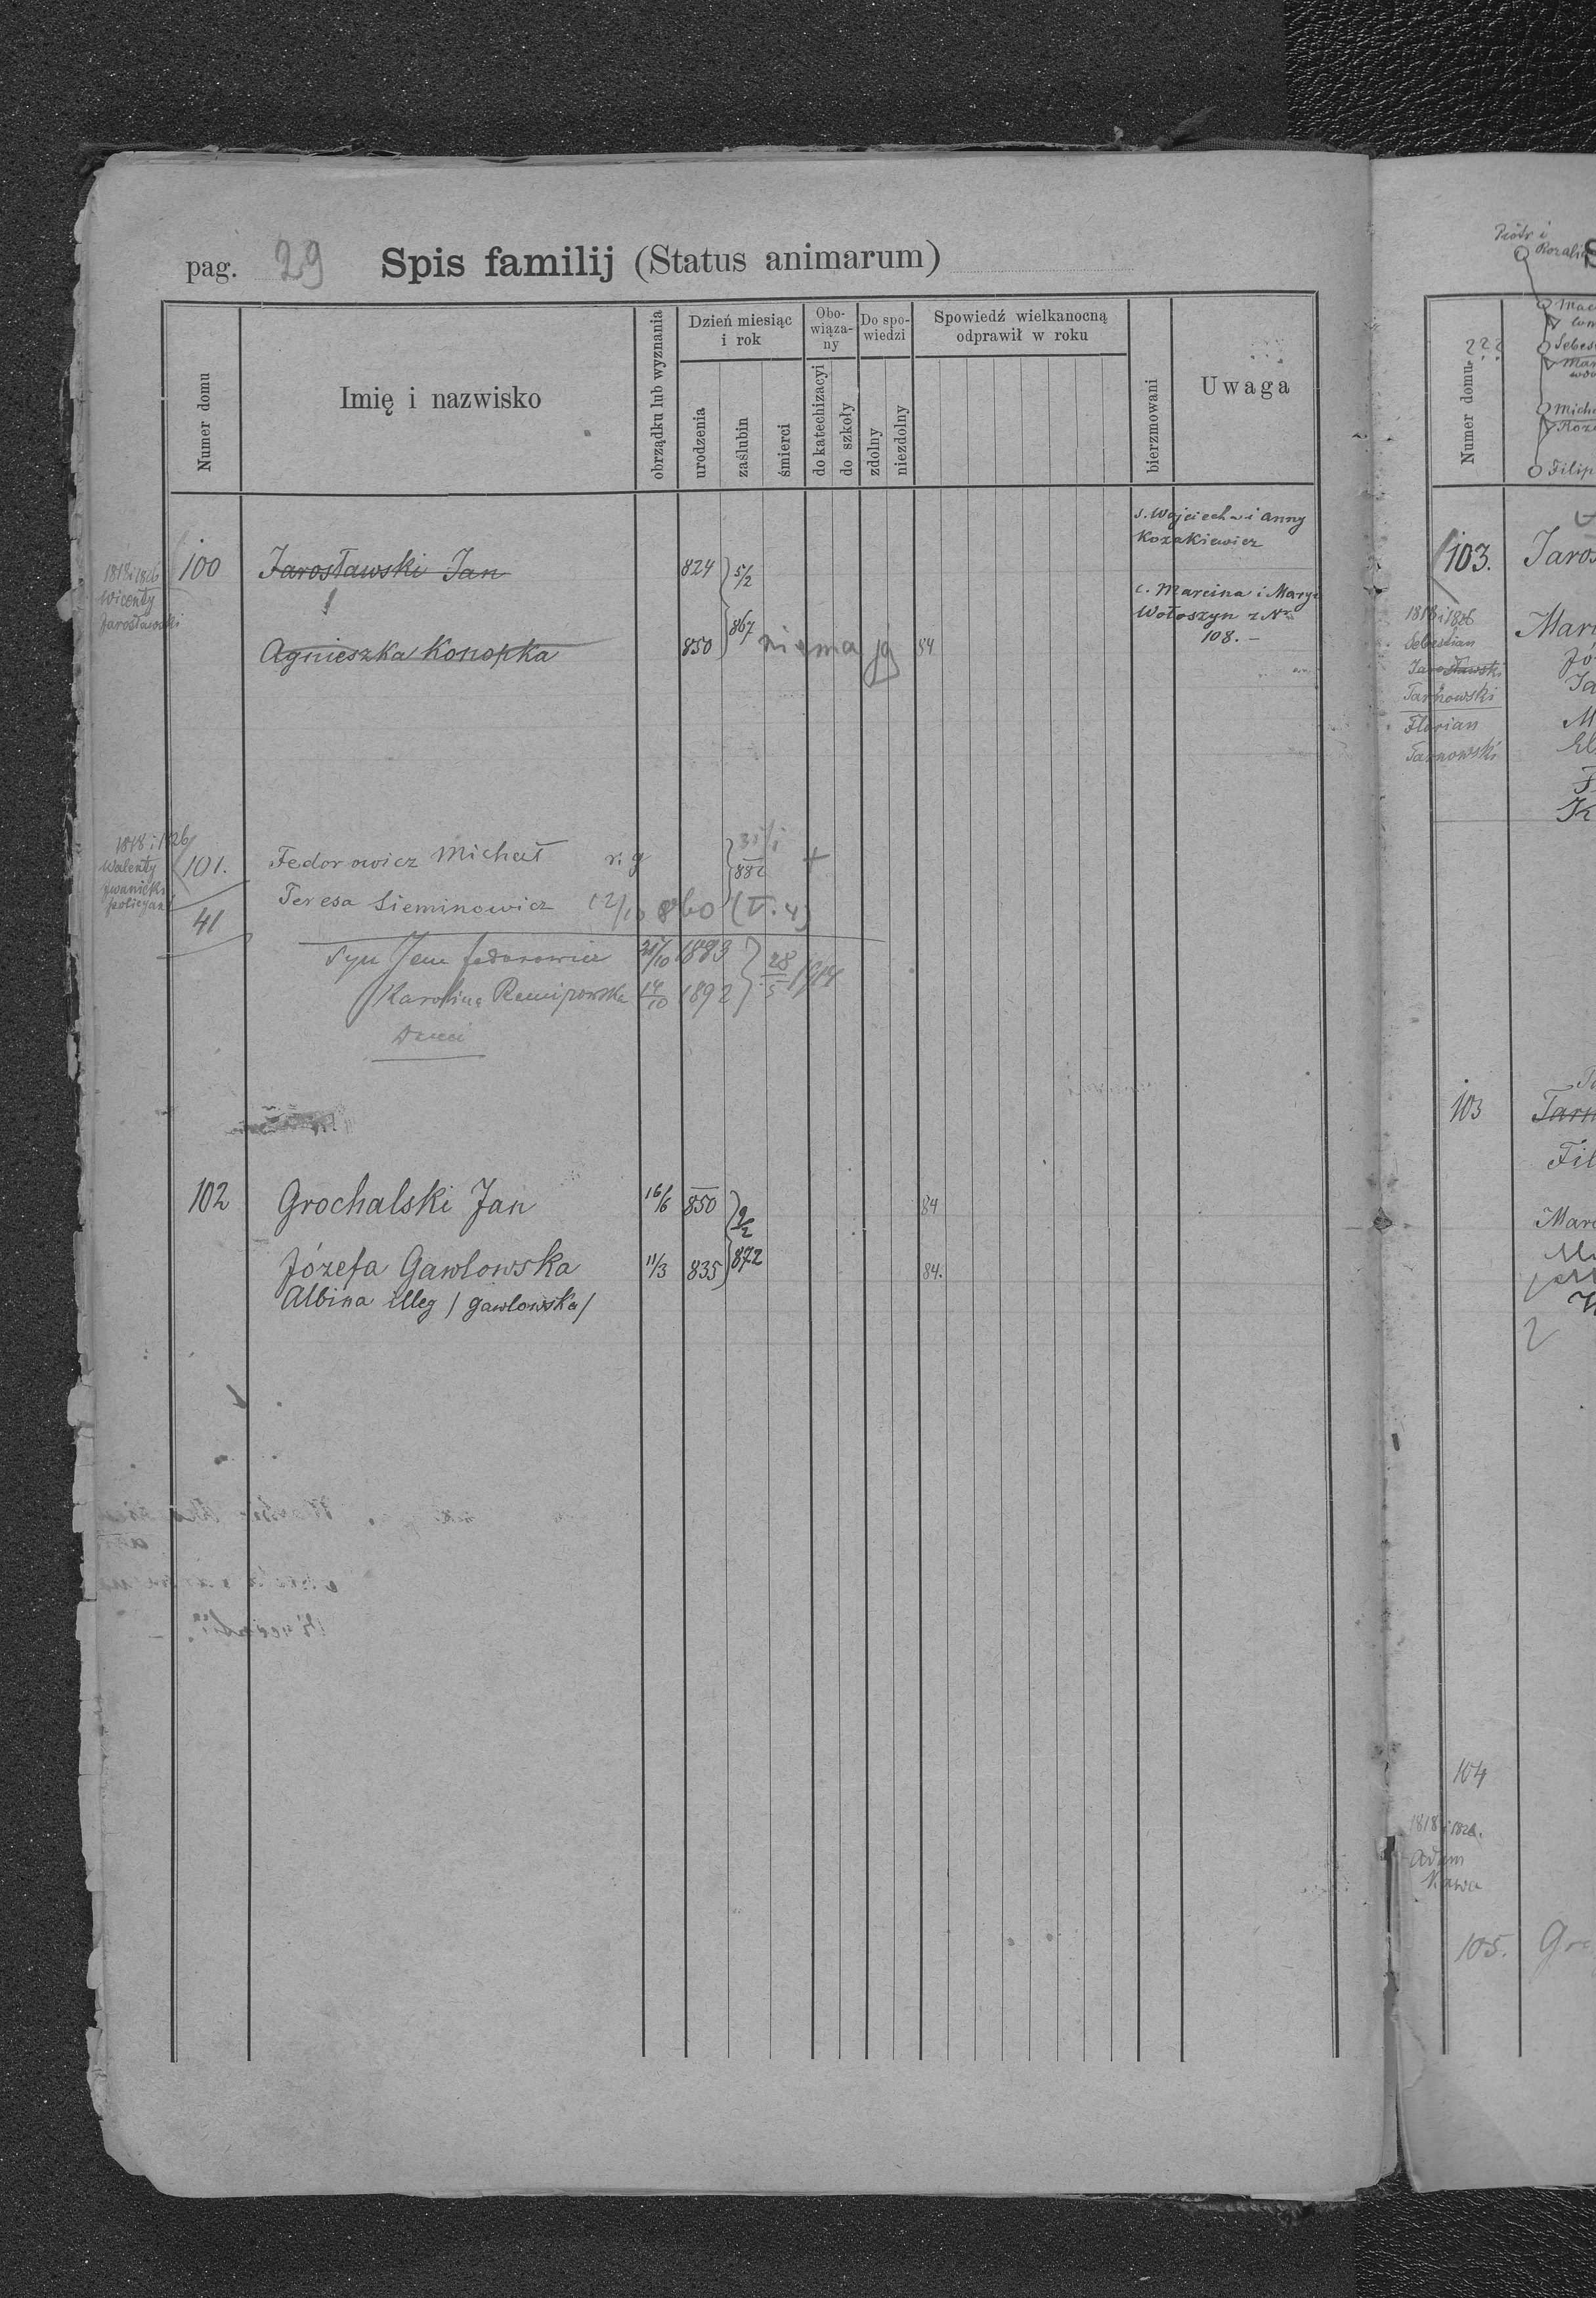 pag. 29 Spis familij (Status animarum)
Numer domu
Imię i nazwisko
obrządku lub wyznania
Dzień miesiąc i rok
urodzenia
zaślubin
śmierci
Obowiąza-
ny
do katechizacyi
do szkoły
Do spo-
wiedzi
zdolny
niezdolny
Spowiedź wielkanocną
odprawił w roku
bierzmowani
Uwaga
s. Wojciecha i Anny
Kozakiewicz
1818 i 1826
Wicenty
Jarosławski
100 Jarosławski Jan 824 5/2
c. Marcina i Maryi
Wołoszyn z Nr.
108. –
Agnieszka Konopka 850 867 niema jej 84
1818 i 1826
Walenty
Iwanicki
policyant
101. Fedorowicz Michał r. g 31/1 882 +
41
Teresa Sieminowicz 12/10 860 (V. 4)
Syn Jan Fedorowicz 21/10 1883 28/5 1914
Karolina 14/10 1892
102 Grochalski Jan 16/6 850 9/2 84
Józefa Gawlowska 11/3 835 872 84.
Albina illeg / Gawlowska /
Piotr i
Rozalia
???
Numer domu
Filip
103. Jaros
1818 i 1826
Sebestian
Jarosławski
Tarnowski
Florian
Tarnowski
103 Tarn
Fil
104
1818 i 1826.
Adam
Kawa
105.